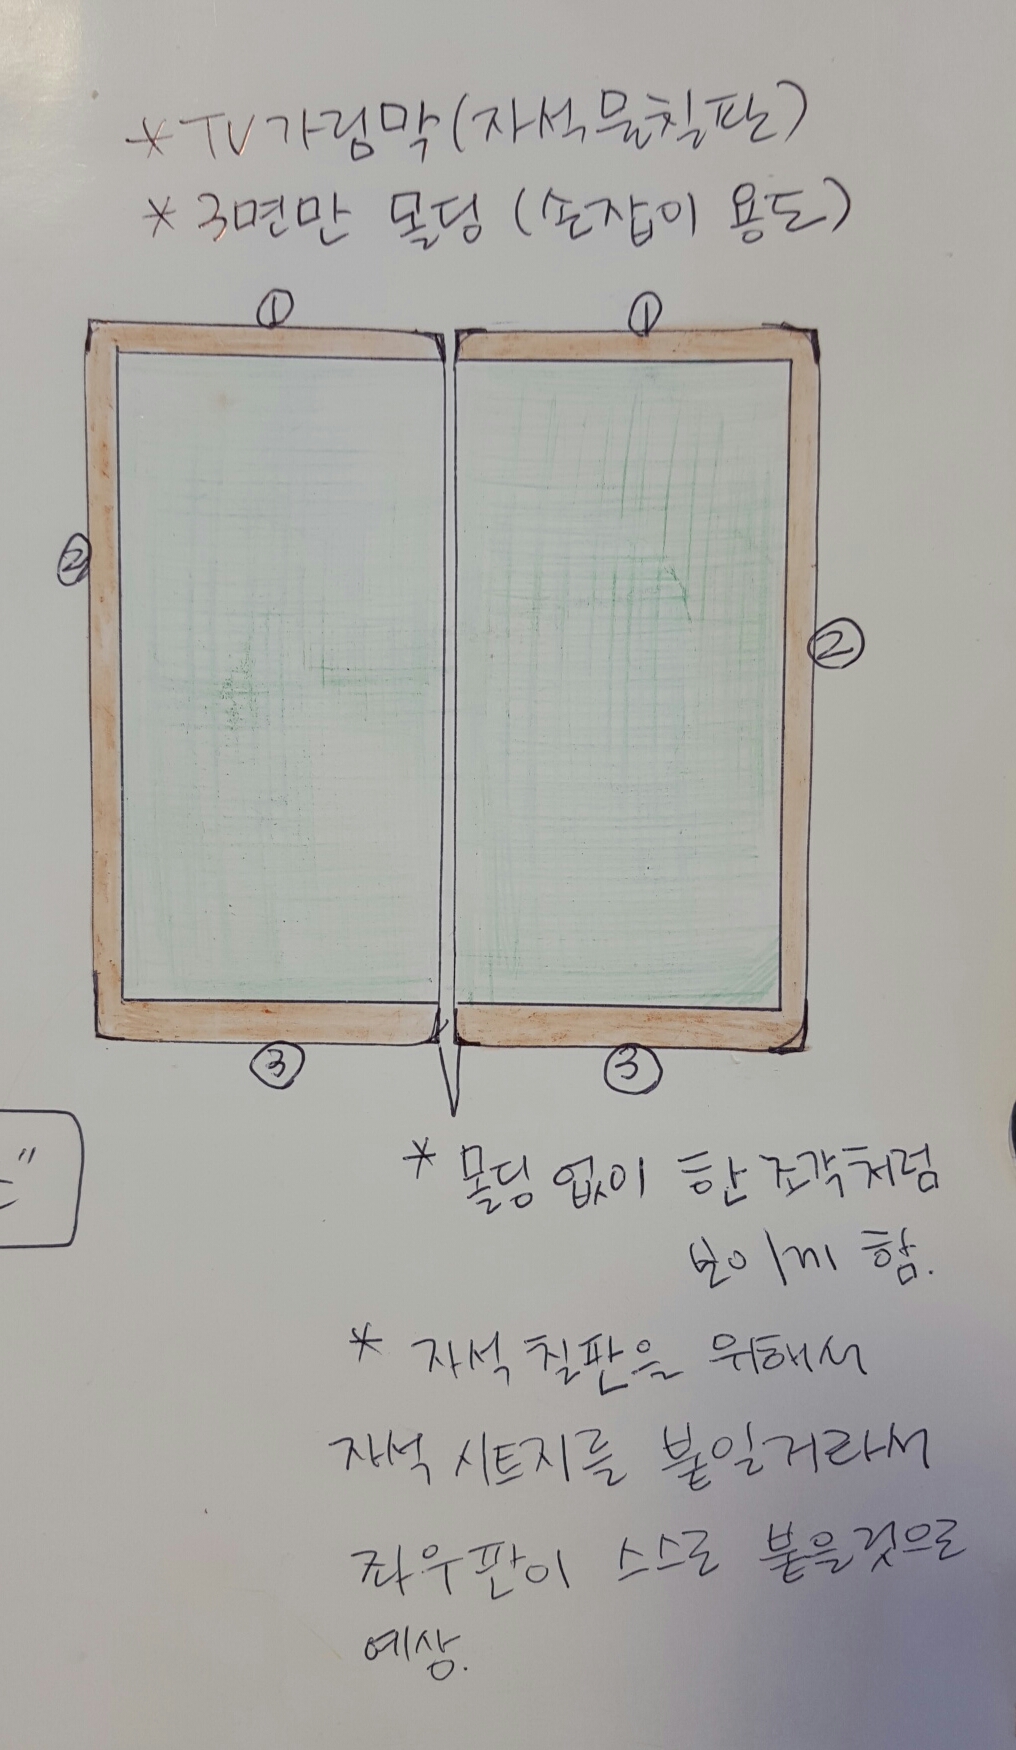 * TV가림막(자석물칠판)
* 3면만 몰딩 (손잡이 용도)
① ①
②
②
③ ③
* 몰딩 없이 한 조각처럼
보이게 함.
"
* 자석 칠판을 위해서
자석 시트지를 붙일거라서
좌우판이 스스로 붙을것으로
예상.